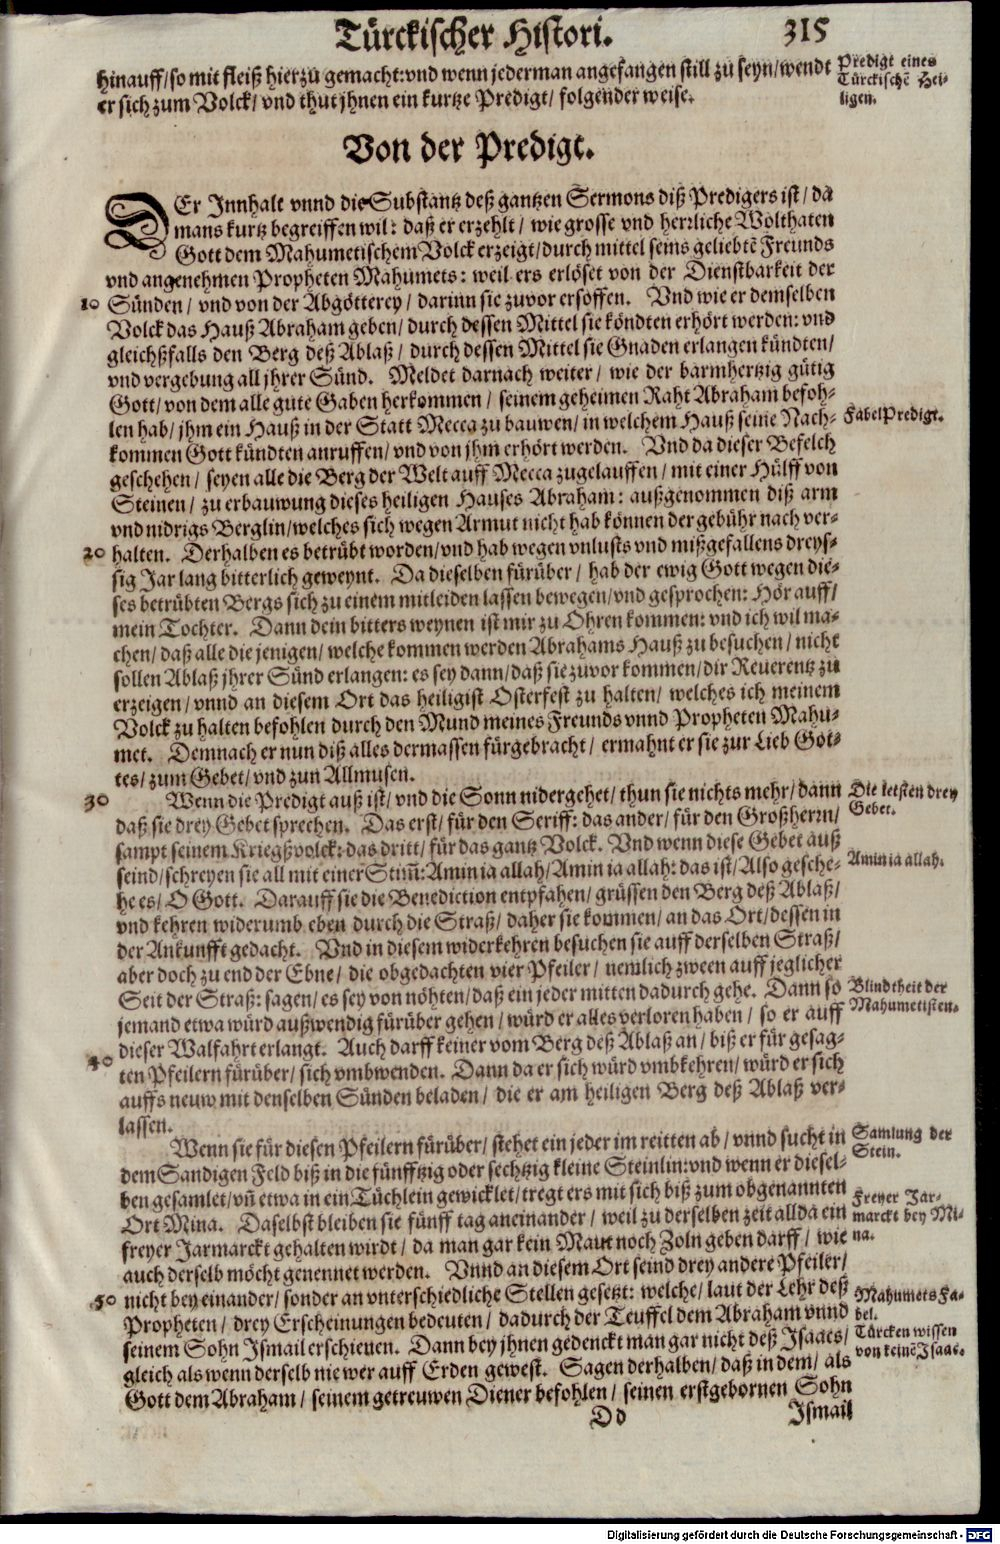 Türckischer Histori. 315
hinauff/ so mit fleiß hierzu gemacht: vnd wenn jederman angefangen still zu seyn/ wendt
er sich zum Volck/ vnd thut jhnen ein kurtze Predigt/ folgender weise.
Predigt eines
Türckischẽ Hei-
ligen.
Von der Predigt.
DEr Innhalt vnnd die Substantz deß gantzen Sermons diß Predigers ist/ da
mans kurtz begreiffen wil: daß er erzehlt/ wie grosse vnd herrliche Wolthaten
Gott dem Mahumetischem Volck erzeigt/ durch mittel seins geliebtẽ Freunds
vnd angenehmen Propheten Mahumets: weil ers erlöset von der Dienstbarkeit der
10 Sünden/ vnd von der Abgötterey/ darinn sie zuvor ersoffen. Vnd wie er demselben
Volck das Hauß Abraham geben/ durch dessen Mittel sie köndten erhört werden: vnd
gleichßfalls den Berg deß Ablaß/ durch dessen Mittel sie Gnaden erlangen kündten/
vnd vergebung all jhrer Sünd. Meldet darnach weiter/ wie der barmhertzig gütig
Gott/ von dem alle gute Gaben herkommen/ seinem geheimen Raht Abraham befoh-
len hab/ jhm ein Hauß in der Statt Mecca zu bauwen/ in welchem Hauß seine Nach-
Fabel Predigt.
kommen Gott kündten anruffen/ vnd von jhm erhört werden. Vnd da dieser Befelch
geschehen/ seyen alle die Berg der Welt auff Mecca zugelauffen/ mit einer Hülff von
Steinen/ zu erbauwung dieses heiligen Hauses Abraham: außgenommen diß arm
vnd nidrigs Berglin/ welches sich wegen Armut nicht hab können der gebühr nach ver-
20 halten. Derhalben es betrübt worden/ vnd hab wegen vnlusts vnd mißgefallens dreys-
sig Jar lang bitterlich geweynt. Da dieselben fürüber/ hab der ewig Gott wegen die-
ses betrübten Bergs sich zu einem mitleiden lassen bewegen/ vnd gesprochen: Hör auff/
mein Tochter. Dann dein bitters weynen ist mir zu Ohren kommen: vnd ich wil ma-
chen/ daß alle die jenigen/ welche kommen werden Abrahams Hauß zu besuchen/ nicht
sollen Ablaß jhrer Sünd erlangen: es sey dann/ daß sie zuvor kommen/ dir Reuerentz zu
erzeigen/ vnnd an diesem Ort das heiligist Osterfest zu halten/ welches ich meinem
Volck zu halten befohlen durch den Mund meines Freunds vnnd Propheten Mahu-
met. Demnach er nun diß alles dermassen fürgebracht/ ermahnt er sie zur Lieb Got-
tes/ zum Gebet/ vnd zun Allmusen.
30 Wenn die Predigt auß ist/ vnd die Sonn nidergehet/ thun sie nichts mehr/ dann
Die letsten drey
Gebet.
daß sie drey Gebet sprechen. Das erst/ für den Seriff: das ander/ für den Großherrn/
sampt seinem Kriegßvolck: das dritt/ für das gantz Volck. Vnd wenn diese Gebet auß
seind/ schreyen sie all mit einer Stim̃: Amin ia allah/ Amin ia allah: das ist/ Also gesche-
Amin ia allah.
he es/ O Gott. Darauff sie die Benediction entpfahen/ grüssen den Berg deß Ablaß/
vnd kehren widerumb eben durch die Straß/ daher sie kommen/ an das Ort/ dessen in
der Ankunfft gedacht. Vnd in diesem widerkehren besuchen sie auff derselben Straß/
aber doch zu end der Ebne/ die obgedachten vier Pfeiler/ nemlich zween auff jeglicher
Seit der Straß: sagen/ es sey von nöhten/ daß ein jeder mitten dadurch gehe. Dann so
Blindtheit der
Mahumetisten.
jemand etwa würd außwendig fürüber gehen/ würd er alles verloren haben/ so er auff
dieser Walfahrt erlangt. Auch darff keiner vom Berg deß Ablaß an/ biß er für gesag-
40 ten Pfeilern fürüber/ sich vmbwenden. Dann da er sich würd vmbkehren/ würd er sich
auffs neuw mit denselben Sünden beladen/ die er am heiligen Berg deß Ablaß ver-
lassen.
Wenn sie für diesen Pfeilern fürüber/ stehet ein jeder im reitten ab/ vnnd sucht in
Samlung der
Stein.
dem Sandigen Feld biß in die fünfftzig oder sechtzig kleine Steinlin: vnd wenn er diesel-
ben gesamlet/ vñ etwa in ein Tüchlein gewicklet/ tregt ers mit sich biß zum obgenannten
Ort Mina. Daselbst bleiben sie fünff tag aneinander/ weil zu derselben zeit allda ein
Freyer Jar-
marckt bey Mi-
na.
freyer Jarmarckt gehalten wirdt/ da man gar kein Maut noch Zoln geben darff/ wie
auch derselb möcht genennet werden. Vnnd an diesem Ort seind drey andere Pfeiler/
50 nicht bey einander/ sonder an vnterschiedliche Stellen gesetzt: welche/ laut der Lehr deß
Mahumets Fa-
bel.
Propheten/ drey Erscheinungen bedeuten/ dadurch der Teuffel dem Abraham vnnd
seinem Sohn Ismail erschienen. Dann bey jhnen gedenckt man gar nicht deß Isaacs/
Türcken wissen
von keinẽ Isaac.
gleich als wenn derselb nie wer auff Erden gewest. Sagen derhalben/ daß in dem/ als
Gott dem Abraham/ seinem getreuwen Diener befohlen/ seinen erstgebornen Sohn
Dd Ismail
Digitalisierung gefördert durch die Deutsche Forschungsgemeinschaft - DFG